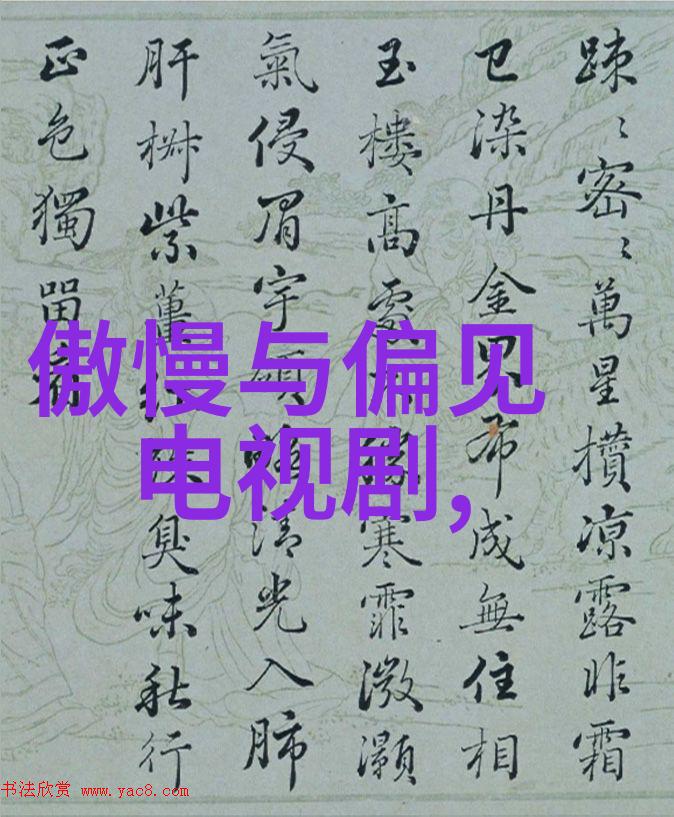 踈〻密〻萬星攢凉露昨霜
已染丹金界布成無住相
玉樓高處寒霏微灝
氣侵眉宇清光入肺
肝紫臭味秋行
正色獨留
傲慢与偏见
电视剧,
书法欣赏 www.yac8.com